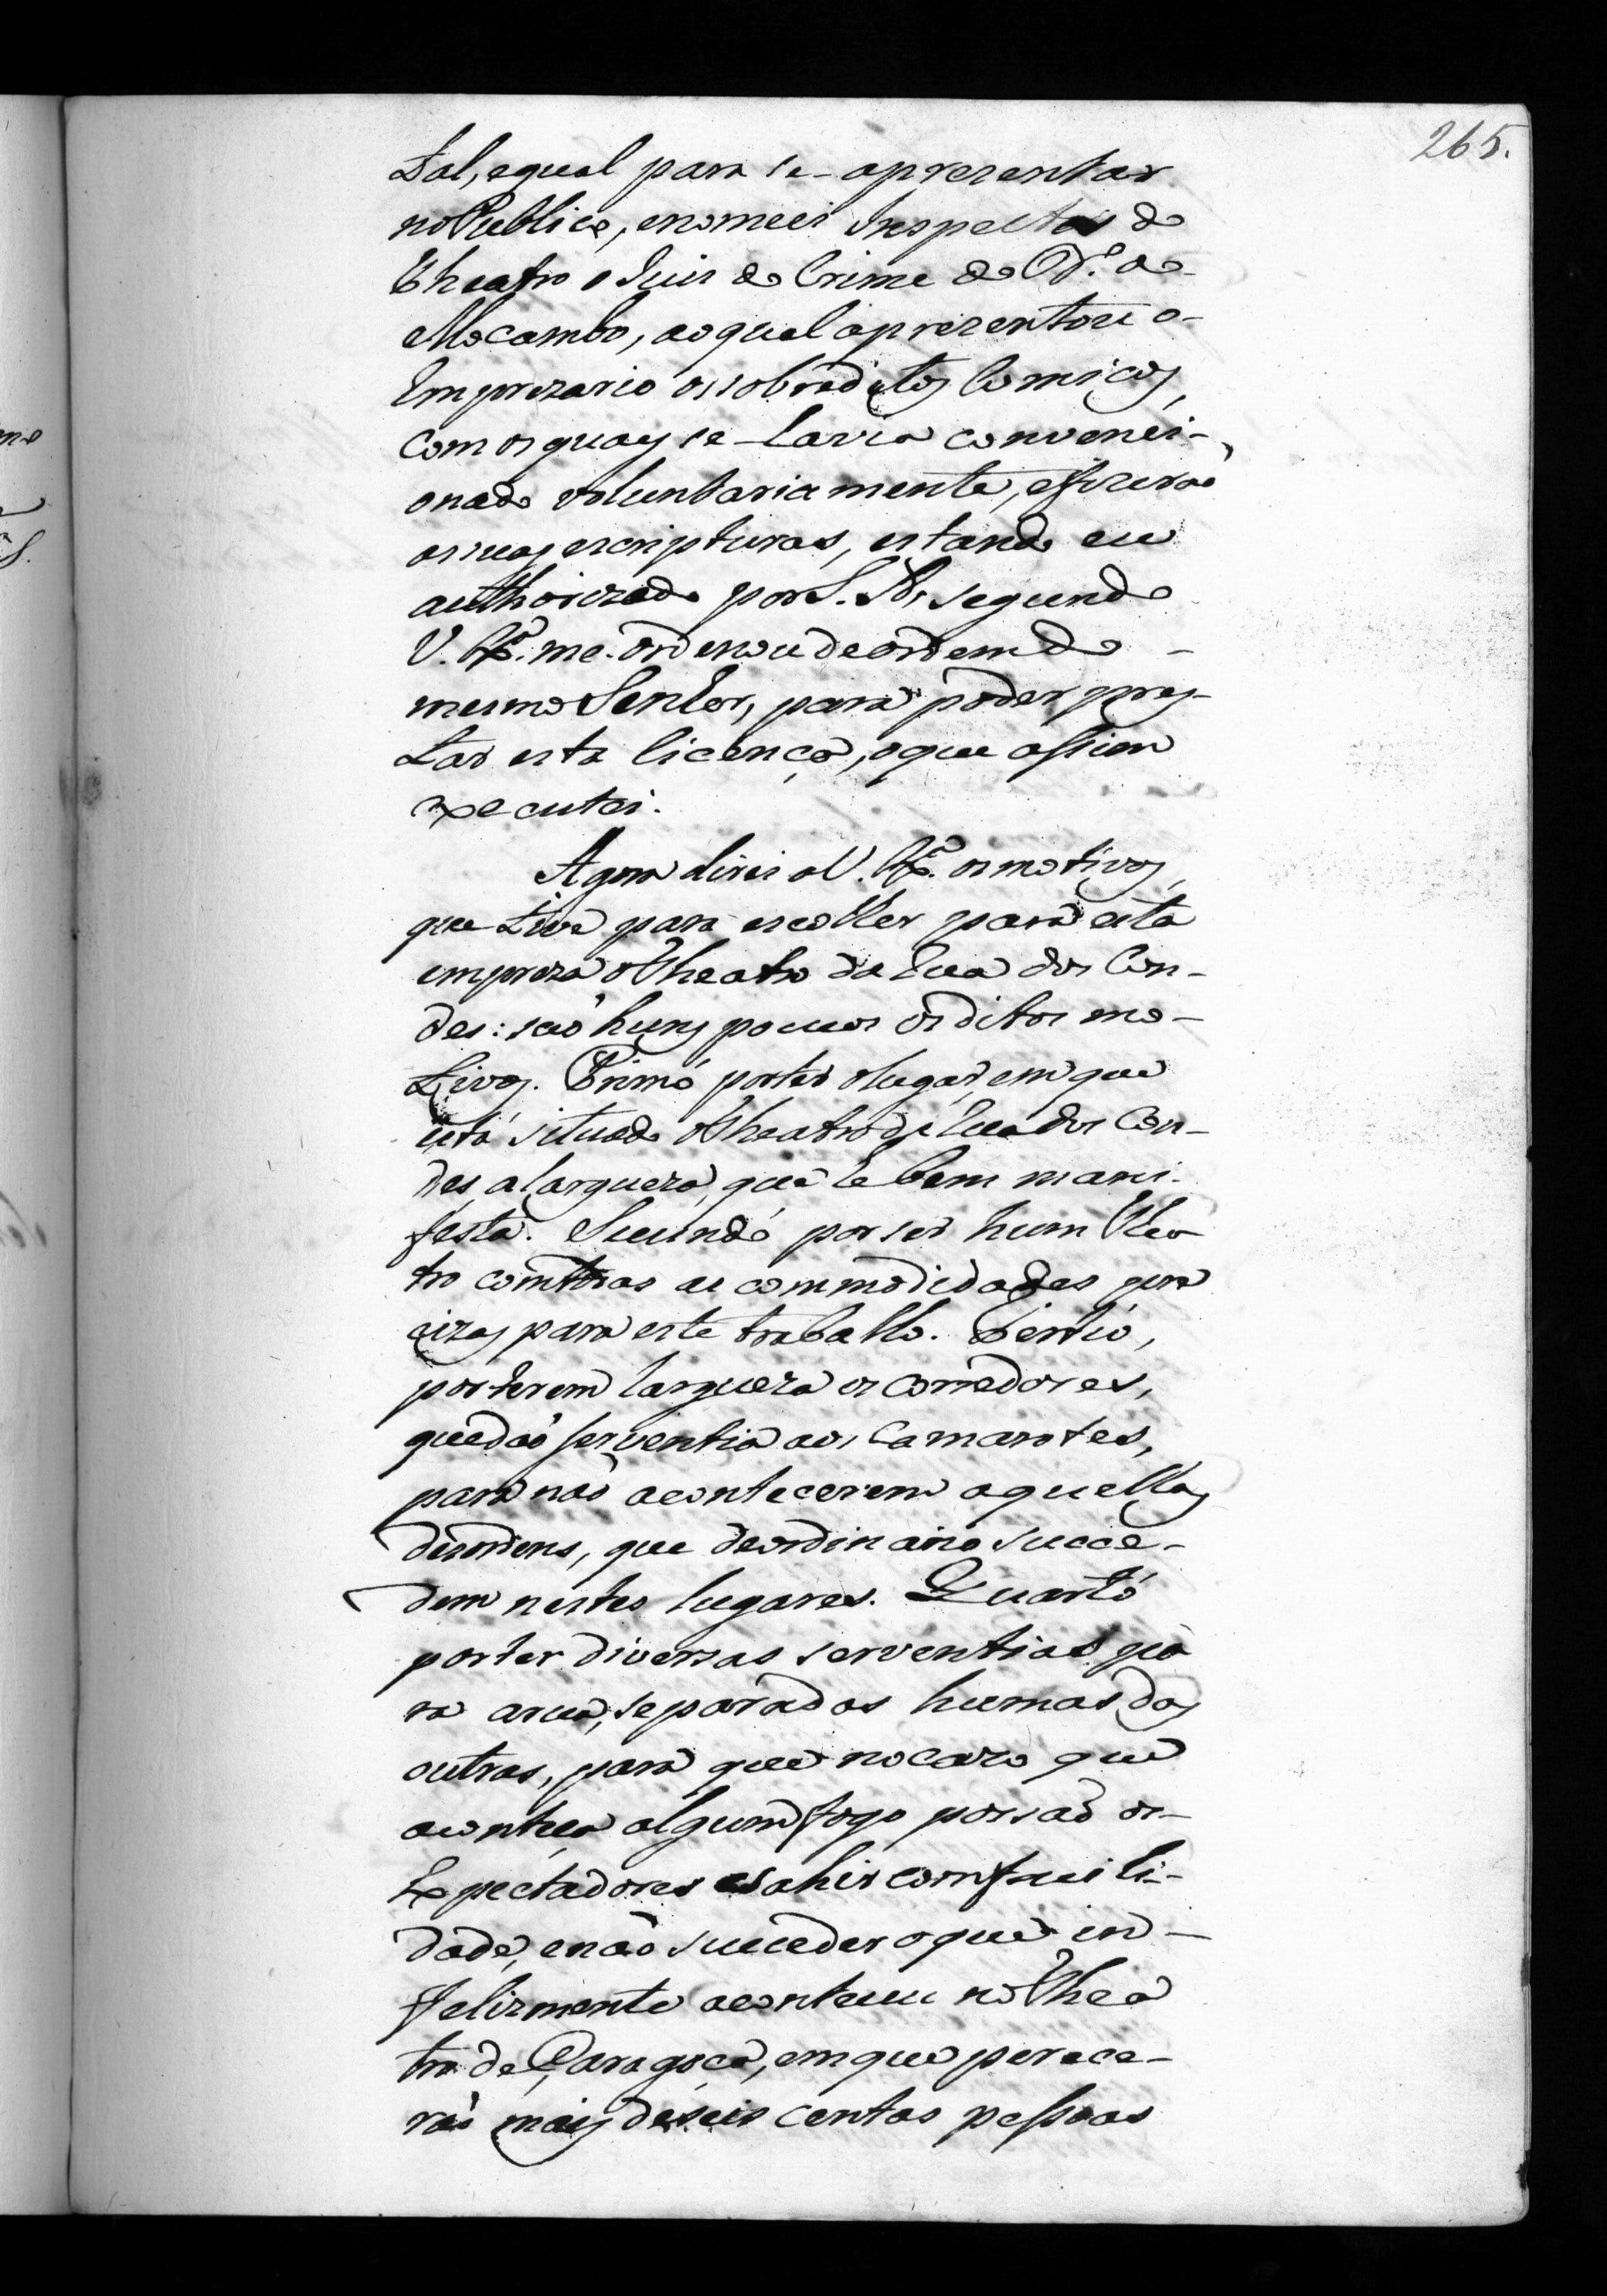 265.
tal, e qual para se apprezentar
no Publico, e nomeei Inspector do
Theatro o Juis do Crime do B.º do
Mocambo, ao qual aprezentou o
Emprezario os sobreditos Comicos,
com os quaes se havia convenci-
onado voluntariamente, e fizerão
as suas escripturas, estando eu
authorizado por S. M. segundo
V. Ex.ª me ordenou de ordem do
mesmo Senhor, para poder pres-
tar esta licença, o que assim
executei.
Agora direi a V. Ex.ª os motivos,
que tive para escolher para esta
empreza o Theatro da Rua dos Con-
des: são huns poucos os ditos mo-
tivos. Primó por ter o lugar, em que
está situado o Theatro da Rua dos Con-
des a largueza, que he bem mani-
festa. Secundó por ser hum Thea
tro com todas as commodidades pre
cizas para este trabalho. Tertió,
por terem largueza os corredores,
que dão serventia aos Camarotes,
para não acontecerem aquellas
desordens, que de ordinario succe-
dem nestes lugares. Quartó
por ter diversas serventias pa
ra a rua, separadas humas das
outras, para que no cazo que
aconteça algum fogo possão os
Expectadores sahir com facili-
dade, e não succeder o que in-
felizmente aconteceu no Thea
tro de Çaragoça, em que perece-
rão mais de seis centas pessoas